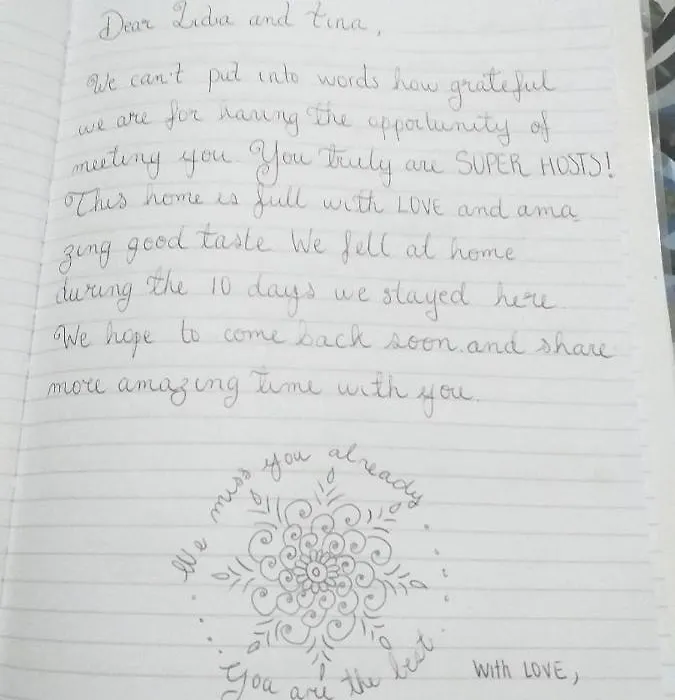 Dear Lidia and Tina,
We can't put into words how grateful
we are for having the opportunity of
meeting you. You truly are SUPER HOSTS!
This home is full with LOVE and ama
zing good taste. We fell at home
during the 10 days we stayed here.
We hope to come back soon and share
more amazing time with you.
We miss you already
You are the best
With LOVE,